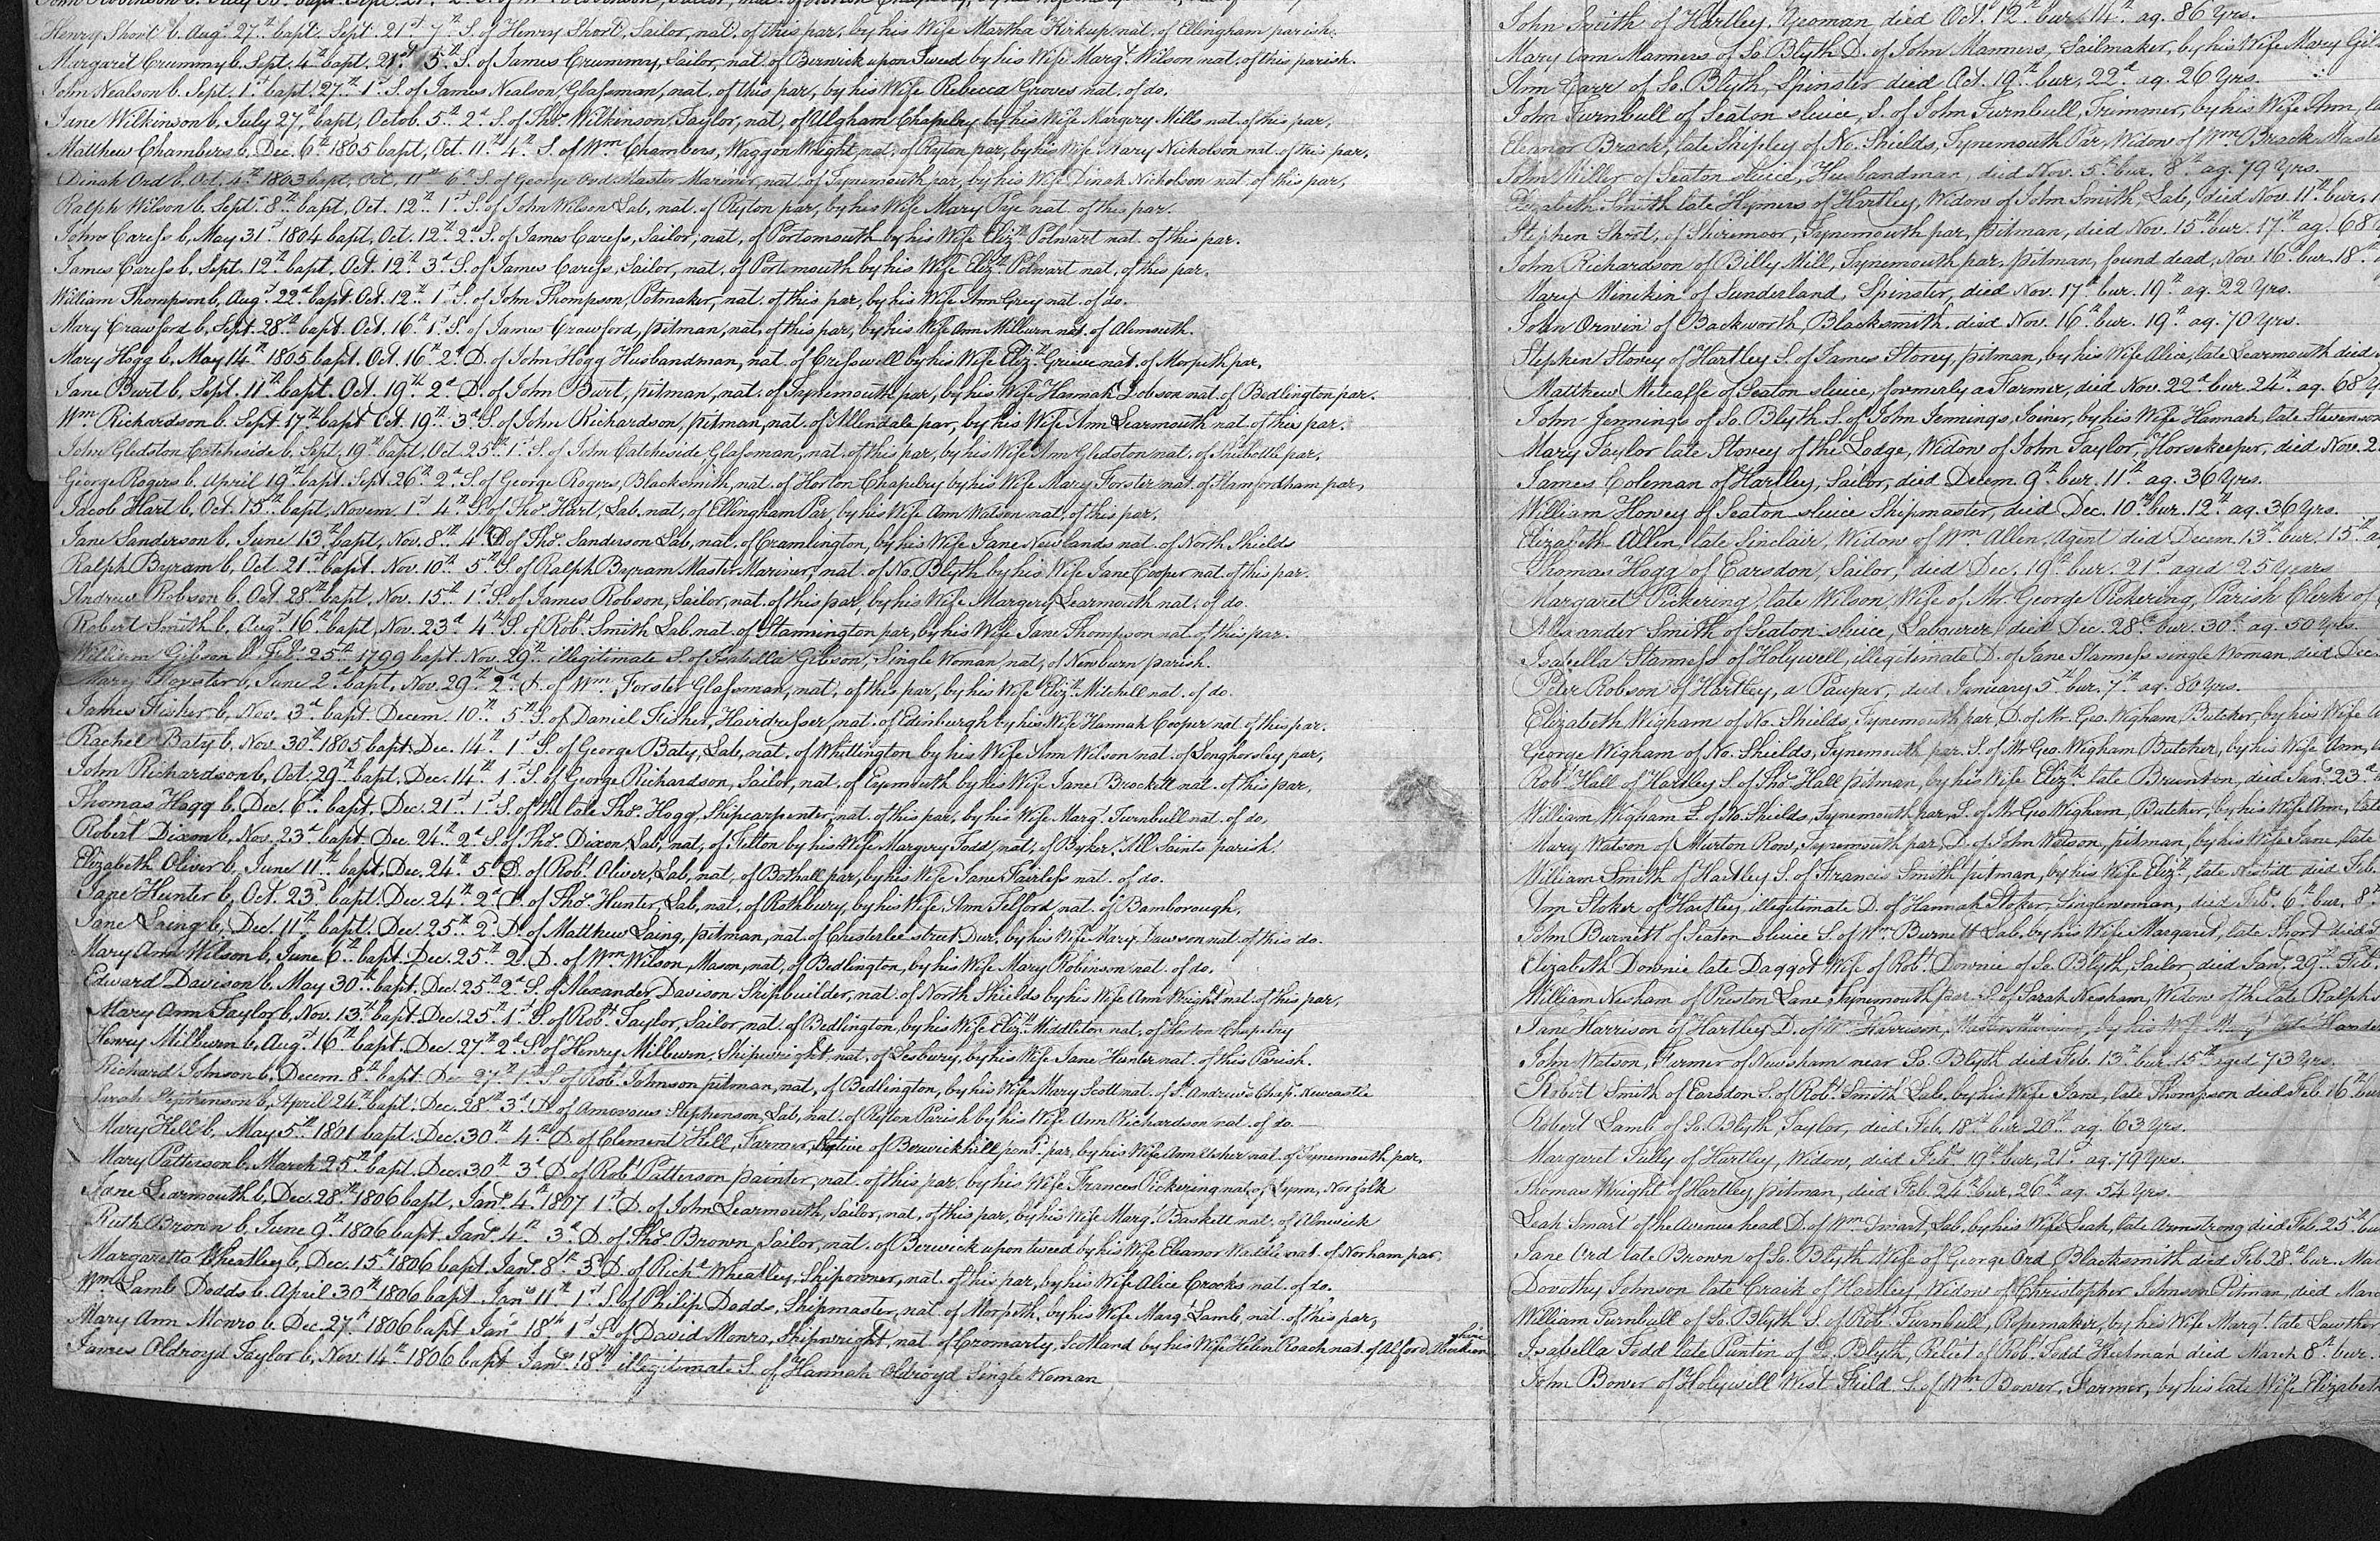 Henry Short b. Aug.t 27th bapt. Sept. 21st 7th S. of Henry Short, Sailor, nat. of this par, by his Wife Martha Kirkup nat. of Ellingham parish.
Margaret Crummy b. Sept. 4th bapt. 21st 5th S. of James Crummy, Sailor, nat. of Berwick upon Tweed by his Wife Margt. Wilson nat, of this parish.
John Nealson b. Sept. 1st bapt. 27th 1st S. of James Nealson, Glassman, nat. of this par, by his Wife Rebecca Groves nat. of do.
Jane Wilkinson b. July 27th bapt, Octob. 5th 2d S. of Thos. Wilkinson, Taylor, nat, of Ulgham Chapelry by his Wife Margery Mills nat. of this par,
Matthew Chambers b. Dec. 6th 1805 bapt, Oct. 11th 4th S. of Wm Chambers, Waggon Wright, nat, of Ryton par, by his Wife Mary Nicholson nat. of this par,
Dinah Ord b. Oct. 4th 1803 bapt, Oct. 11th 6th S. of George Ord Master Mariner, nat. of Tynemouth par, by his Wife Dinah Nicholson nat. of this par,
Ralph Wilson b. Sept. 8th bapt, Oct. 12th 1st S. of John Wilson Lab, nat. of Ryton par, by his Wife Mary Pye nat. of this par.
John Caress b, May 31st 1804 bapt, Oct. 12th 2d S. of James Caress, Sailor, nat, of Portsmouth by his Wife Elizth Polwart nat. of this par.
James Caress b. Sept. 12th bapt, Oct. 12th 3d S. of James Caress, Sailor, nat. of Portsmouth by his Wife Elizth Polwart nat, of this par,
William Thompson b, Augt 22d bapt. Oct. 12th 1st S. of John Thompson, Potmaker, nat. of this par, by his Wife Ann Grey nat. of do.
Mary Crawford b, Sept. 28th bapt. Oct. 16th 1st S. of James Crawford, pitman, nat, of this par, by his Wife Ann Milburn nat. of Alemouth.
Mary Hogg b, May 14th 1805 bapt. Oct. 16th 2d D. of John Hogg Husbandman, nat. of Cresswell by his Wife Elizth Grieve nat. of Morpeth par,
Jane Burt b, Sept. 11th bapt. Oct. 19th 2d D. of John Burt, pitman, nat. of Tynemouth par, by his Wife Hannah Dobson nat. of Bedlington par.
Wm. Richardson b. Sept. 17th bapt Oct. 19th 3d S. of John Richardson, pitman, nat. of Allendale par, by his Wife Ann Learmouth nat. of this par.
John Gledston Catcheside b, Sept. 19th bapt, Oct. 25th 1st S. of John Catcheside Glassman, nat. of this par, by his Wife Ann Gledston nat. of Shilbottle par,
George Rogers b. April 19th bapt. Sept. 26th 2d S. of George Rogers, Blacksmith, nat. of Horton Chapelry by his Wife Mary Forster nat. of Stamfordham par,
Jacob Hart b, Oct. 15th bapt, Novem. 1st 4th S. of Thos. Hart, Lab. nat, of Ellingham Par, by his Wife Ann Watson nat. of this par,
Jane Sanderson b. June 13th bapt, Nov. 8th 4th D. of Thos. Sanderson Lab, nat. of Cramlington, by his Wife Jane Newlands nat. of North Shields
Ralph Byram b, Oct. 21st bapt. Nov. 10th 5th S. of Ralph Byram Master Mariner, nat. of No. Blyth by his Wife Jane Cooper nat. of this par.
Andrew Robson b, Oct. 28th bapt, Nov. 15th 1st S. of James Robson, Sailor, nat. of this par, by his Wife Margery Learmouth nat. of do.
Robert Smith b, Augt 16th bapt, Nov. 23d 4th S. of Robt. Smith Lab. nat. of Stannington par, by his Wife Jane Thompson nat. of this par.
William Gibson b. Feb. 25th 1799 bapt. Nov. 29th illegitimate S. of Isabella Gibson, Single Woman, nat, of Newburn parish.
Mary Forster b, June 2d bapt, Nov. 29th 2d D. of Wm. Forster Glassman, nat, of this par, by his Wife Elizth Mitchell nat. of do.
James Fisher b, Nov. 3d bapt. Decem. 10th 5th S. of Daniel Fisher, Hairdresser, nat. of Edinburgh by his Wife Hannah Cooper nat. of this par.
Rachel Baty b, Nov. 30th 1805 bapt. Dec. 14th 1st S. of George Baty, Lab, nat. of Whittington by his Wife Ann Wilson nat. of Longhorsley par,
John Richardson b, Oct. 29th bapt. Dec. 14th 1st S. of George Richardson, Sailor, nat. of Eyemouth by his Wife Jane Brockett nat. of this par,
Thomas Hogg b, Dec. 6th bapt. Dec. 21st 1st S. of the late Thos. Hogg, Shipcarpenter, nat. of this par, by his Wife Margt. Turnbull nat. of do,
Robert Dixon b, Nov. 23d bapt. Dec. 24th 2d S. of Thos. Dixon Lab, nat, of Felton by his Wife Margery Todd, nat, of Byker, All Saints parish.
Elizabeth Oliver b, June 11th bapt. Dec. 24th 5th D. of Robt. Oliver, Lab, nat, of Bothall par, by his Wife Jane Fairless nat. of do.
Jane Hunter b, Oct. 23d bapt. Dec. 24th 2d D. of Thos. Hunter, Lab, nat, of Rothbury, by his Wife, Ann Telford, nat. of Bamborough,
Jane Laing b, Dec. 11th bapt. Dec. 25th 2d D. of Matthew Laing, pitman, nat. of Chesterlee street Dur, by his Wife Mary Dawson nat. of this do.
Mary Ann Wilson b, June 6th bapt. Dec. 25th 2. D. of Wm Wilson, Mason, nat, of Bedlington, by his Wife Mary Robinson nat. of do,
Edward Davison b. May 30th bapt. Dec. 25th 2d S. of Alexander Davison Shipbuilder, nat. of North Shields by his Wife Ann Wright nat. of this par,
Mary Ann Taylor b, Nov. 13th bapt. Dec. 25th 1st S. of Robt. Taylor, Sailor, nat. of Bedlington, by his Wife Elizth Middleton nat, of Horton Chapelry
Henry Milburn b, Augt 16th bapt. Dec. 27th 2d S. of Henry Milburn, Shipwright nat, of Lesbury, by his Wife Jane Hunter nat. of this Parish.
Richard Johnson b. Decem. 8th bapt. Dec 27th 1st S. of Robt. Johnson pitman, nat, of Bedlington, by his Wife Mary Scott nat. of St. Andrew's Chap. Newcastle
Sarah Stephenson b, April 24th bapt. Dec. 28th 3d D. of Amorous Stephenson, Lab, nat. of Ryton Parish by his Wife Ann Richardson nat. of do.
Mary Hell b, May 5th 1801 bapt. Dec. 30th 4th D. of Clement Hell, Farmer, Native of Berwickhill pont. par, by his Wife Ann Usher nat. of Tynemouth par,
Mary Patterson b. March 25th bapt. Dec. 30th 3d D. of Robt Patterson painter, nat. of this par, by his Wife Frances Pickering nat, of Lynn, Norfolk
Jane Learmouth b, Dec. 28th 1806 bapt, Jany. 4th 1807 1st D. of John Learmouth, Sailor, nat, of this par, by his Wife Margt. Baskett nat. of Alnwick
Ruth Brown b, June 9th 1806 bapt Jany. 4th 3d D. of Thos. Brown, Sailor, nat. of Berwick upon tweed by his Wife Eleanor Waddle nat. of Norham par,
Margaretta Wheatley b, Dec. 15th 1806 bapt. Jany. 8th 3d D. of Richd Wheatley, Shipowner, nat. of this par, by his Wife Alice Crooks nat. of do.
Wm. Lamb Dodds b. April 30th 1806 bapt. Jany 11th 1st S. of Philip Dodds, Shipmaster, nat. of Morpeth, by his Wife Margt. Lamb, nat. of this par,
Mary Ann Monro b. Dec. 27th 1806 bapt Jany 18th 1st S. of David Monro, Shipwright, nat. of Cromarty, Scotland by his Wife Helen Roach nat. of Alford Aberdeenshire
James Oldroyd Taylor b, Nov. 14th 1806 bapt Jany. 18th illegitimate S. of Hannah Oldroyd Single Woman
John Smith of Hartley, Yeoman, died Oct. 12th bur. 14th ag. 86 Yrs.
Mary Ann Manners of So. Blyth D. of John Manners, Sailmaker, by his Wife Mary
Ann Carr of So. Blyth, Spinster died Oct. 19th bur. 22d ag. 26 Yrs.
John Turnbull of Seaton sluice, S. of John Turnbull, Trimmer, by his Wife Ann,
Eleanor Brack, late Shipley of No. Shields, Tynemouth Par, Widow of Wm. Brack
John Miller of Seaton sluice, Husbandman, died Nov. 5th bur. 8th ag. 79 Yrs.
Elizabeth Smith late Hymers of Hartley, Widow of John Smith, Lab, died Nov. 11th bur.
Stephen Short, of Shiremoor, Tynemouth par, pitman, died Nov. 15th bur. 17th ag. 68
John Richardson of Billy Mill, Tynemouth par, pitman, found dead, Nov. 16th bur. 18
Mary Minikin of Sunderland, Spinster, died Nov. 17th bur. 19th ag. 22 Yrs.
John Orwin of Backworth, Blacksmith. died Nov. 16th bur. 19th ag. 70 Yrs.
Stephen Storey of Hartley S. of James Storey, pitman, by his Wife Alice, late Learmouth died
Matthew Metcalfe of Seaton sluice, formerly a Farmer, died Nov. 22d bur. 24th ag. 68
John Jennings of So. Blyth S. of John Jennings, Joiner, by his Wife Hannah, late Stevenson
Mary Taylor late Storey of the Lodge, Widow of John Taylor, Horsekeeper, died Nov. 2
James Coleman of Hartley, Sailor, died Decem. 9th bur. 11th ag. 36 Yrs.
William Howey of Seaton sluice Shipmaster, died Dec. 10th bur. 12th ag. 36 Yrs.
Elizabeth Allen, late Sinclair, Widow of Wm. Allen, Agent died Decem. 13th bur. 15th
Thomas Hogg of Earsdon, Sailor, died Dec. 19th bur. 21st aged 25 Years
Margaret Pickering, late Wilson, Wife of Mr. George Pickering, Parish Clerk of
Alexander Smith of Seaton sluice, Labourer, died Dec. 28th bur. 30th ag. 50 Yrs.
Isabella Stanness of Holywell, illegitimate D. of Jane Stanness single Woman, died Dec.
Peter Robson of Hartley, a Pauper, died January 5th bur. 7th ag. 80 Yrs.
Elizabeth Wigham of No. Shields, Tynemouth par, D. of Mr. Geo. Wigham, Butcher, by his Wife
George Wigham of No. Shields, Tynemouth par. S. of Mr Geo. Wigham Butcher, by his Wife Ann,
Robt Hall of Hartley S. of Thos. Hall pitman, by his Wife Elizth late Brunton, died Jany. 23d
William Wigham of No. Shields, Tynemouth par, S. of Mr Geo Wigham, Butcher, by his Wife Ann, late
Mary Watson of Murton Row, Tynemouth par, D. of John Watson, pitman, by his Wife Jane, late
William Smith of Hartley S. of Francis Smith pitman, by his Wife Elizth, late Nesbitt died Feb.
Ann Stoker of Hartley, illegitimate D. of Hannah Stoker, Singlewoman, died Feb. 6th bur. 8th
John Burnett of Seaton sluice S. of Wm. Burnett Lab, by his Wife Margaret, late Short died
Elizabeth Downie late Daggot Wife of Robt. Downie of So. Blyth, Sailor, died Jany. 29th Feb.
William Nesham of Preston Lane, Tynemouth par. S. of Sarah Nesham, Widow of the late Ralph
Jane Harrison of Hartley D. of Wm Harrison, by his Wife Mary late
John Watson, Farmer of Newsham near So. Blyth died Feb. 13th bur. 15th aged 73 Yrs.
Robert Smith of Earsdon S. of Robt. Smith Lab, by his Wife Jane, late Thompson died Feb. 16th bur
Robert Lamb of So. Blyth, Taylor, died Feb. 18th bur. 20th ag. 63 Yrs.
Margaret Tully of Hartley, Widow, died Feby. 19th bur. 21st ag. 79 Yrs.
Thomas Wright of Hartley, pitman, died Feb. 24th bur. 26th ag. 54 Yrs.
Leah Smart of the Avenue head D. of Wm. Smart, Lab, by his Wife Leah, late Armstrong died Feb. 25th bur
Jane Ord late Brown of So. Blyth Wife of George Ord Blacksmith died Feb. 28th bur. Mar
Dorothy Johnson late Craik of Hartley, Widow of Christopher Johnson Pitman, died Marc
William Turnbull of So. Blyth S. of Robt. Turnbull, Ropemaker, by his Wife Margt. late Lawther
Isabella Todd late Puntin of So. Blyth, Relict of Robt. Todd Keelman died March 8th bur.
John Bower of Holywell West Field S. of Wm. Bower, Farmer, by his late Wife Elizabeth